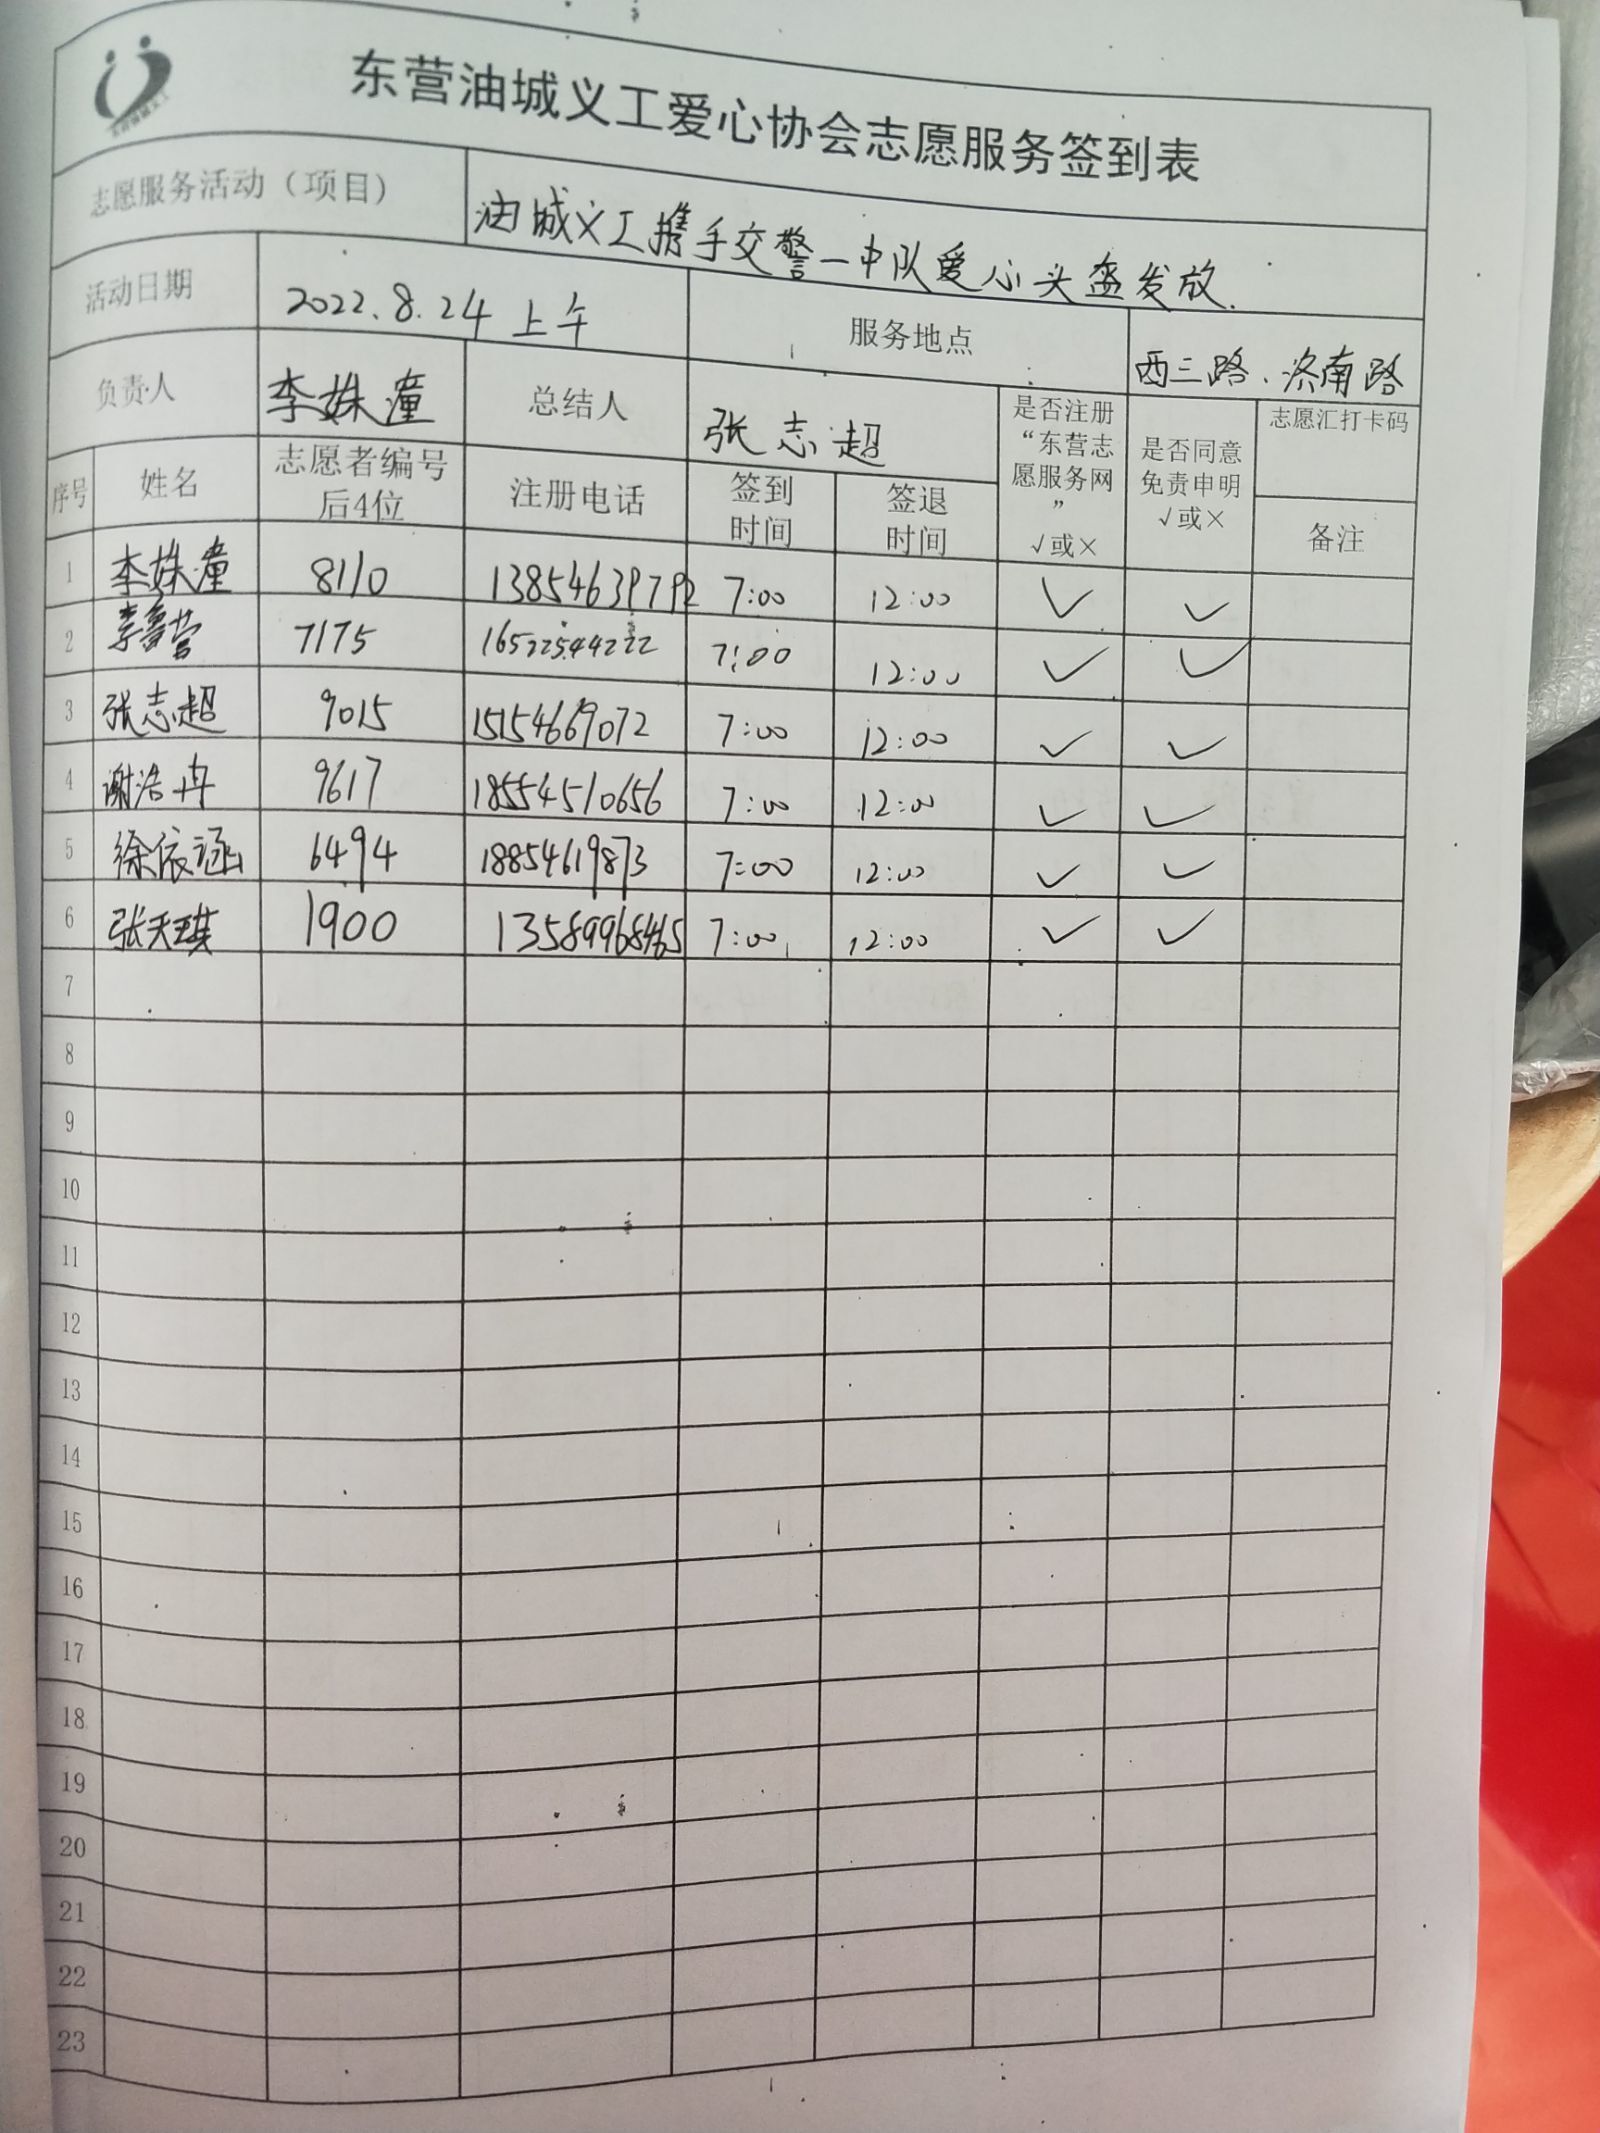 东营油城义工爱心协会志愿服务签到表
志愿服务活动（项目） 油城义工携手交警一中队爱心头盔发放.
活动日期 2022.8.24 上午 服务地点 西三路、济南路
负责人 李姝潼 总结人 张志超 是否注册“东营志愿服务网” √或× 是否同意免责申明 √或× 志愿汇打卡码
序号 姓名 志愿者编号后4位 注册电话 签到时间 签退时间 备注
1 李姝潼 8110 13854639792 7:00 12:00 ✓ ✓
2 李鲁营 7175 16522544222 7:00 12:00 ✓ ✓
3 张志超 9015 15154669072 7:00 12:00 ✓ ✓
4 谢浩冉 9617 18554510656 7:00 12:00 ✓ ✓
5 徐依涵 6494 18854619873 7:00 12:00 ✓ ✓
6 张天琪 1900 13589968465 7:00 12:00 ✓ ✓
7
8
9
10
11
12
13
14
15
16
17
18
19
20
21
22
23